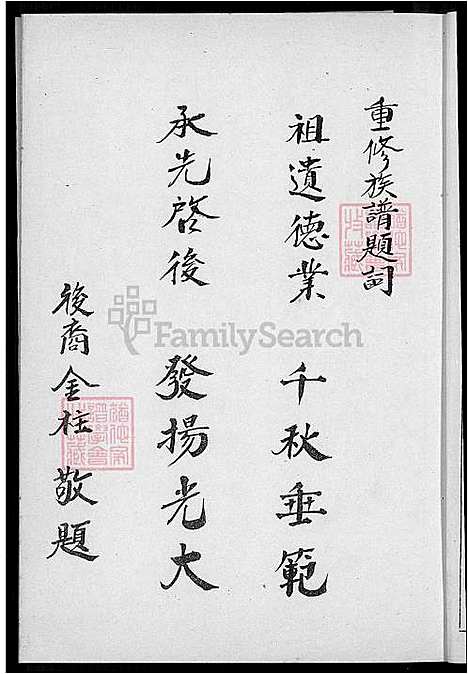 重修族譜題詞
祖遺德業 千秋垂範
承先啓後 發揚光大
後裔金柱敬題
FamilySearch